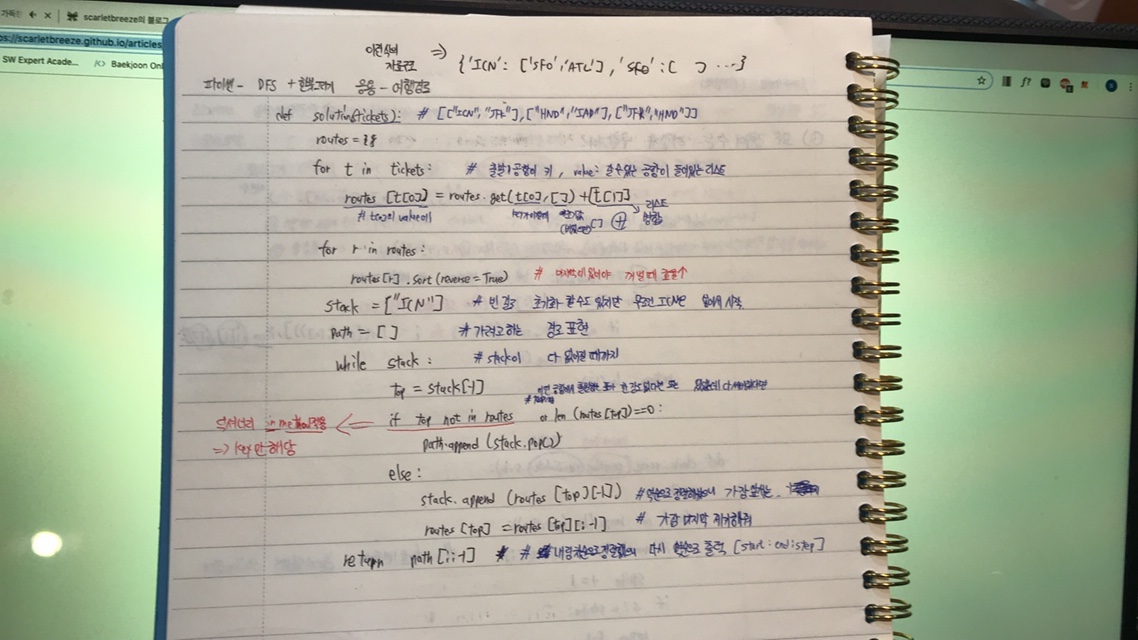 scarletbreeze의 블로그
https://scarletbreeze.github.io/articles
SW Expert Acade... Baekjoon Onl
이런식의 자료구조 => {'ICN': ['SFO','ATL'], 'SFO':[ ] ...}
파이썬 - DFS + 응용 - 여행경로
def solution(tickets): # [["ICN","JFK"],["HND","IAD"],["JFK","HND"]]
routes = {}
for t in tickets: # 출발공항이 키, value: 갈수있는 공항이 들어있는 리스트
routes[t[0]] = routes.get(t[0],[]) + [t[1]]
# t[0]의 value에 [] + 리스트
for r in routes:
routes[r].sort(reverse=True) # 마지막에 있어야 꺼낼때 효율↑
stack = ["ICN"] # 빈 경로 초기화 할수도 있지만 무조건 ICN에 시작
path = [] # 가려고하는 경로 표현
while stack: # stack이 다 없어질때까지
top = stack[-1]
딕셔너리 => key만 해당
if top not in routes or len(routes[top])==0:
path.append(stack.pop())
else:
stack.append(routes[top][-1]) # 가장
routes[top] = routes[top][:-1] # 가장 마지막 제거해줘
return path[::-1] # 다시 역순으로 출력 [start:end:step]